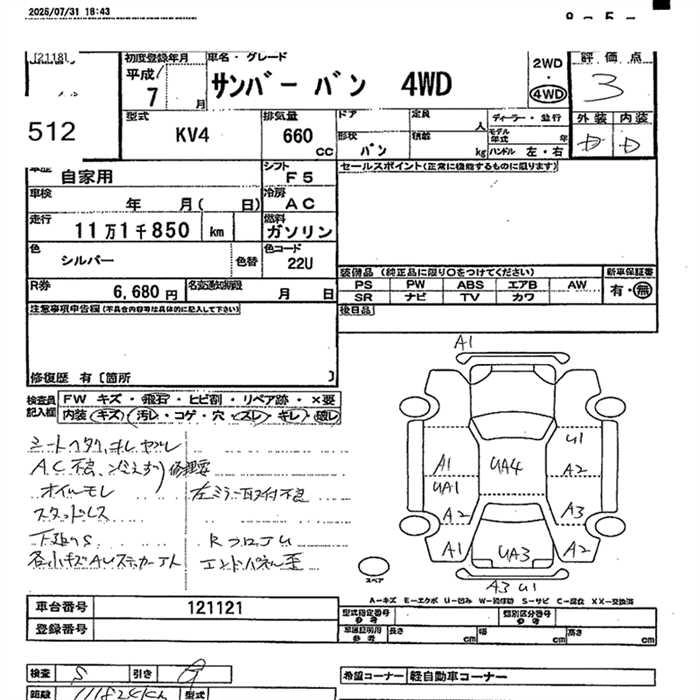 2025/07/31 18:43
[2118]
初度登録年月
平成
7 月
車名・グレード
サンバーバン 4WD
2WD
・
4WD
評価点
3
512
型式
KV4
排気量
660
cc
ドア
定員
人
形状
バン
積載
kg
ディーラー・並行
モデル
年式
年
ハンドル 左・右
外装
内装
D
D
車歴
自家用
シフト
F5
車検
年 月( 日)
冷房
AC
走行
11万1千850
km
燃料
ガソリン
色
シルバー
色替
色コード
22U
R券
6,680 円
名変通知期限
月 日
セールスポイント(正常に機能するものに限ります)
装備品 (純正品に限り○をつけてください)
新車保証書
PS PW ABS エアB AW
SR ナビ TV カワ
有・無
後日品
注意事項申告欄(不具合内容等は具体的に記入して下さい)
修復歴 有〔箇所 〕
検査員
記入欄
FW キズ・飛石・ヒビ割・リペア跡・×要
内装 キズ・汚レ・コゲ・穴・スレ・キレ・破レ
シートヘタリ、キレ、ヤブレ
AC不良、冷えず
修理要
オイルモレ
左ミラー取付不良
スタッドレス
下廻りS
RフロアU
各小キズAUステッカー
エンドパネル歪
A1
U1
A1
UA1
UA4
A2
A3
A2
A1
UA3
A2
A3 U1
スペア
A-キズ E-エクボ U-凹み W-補修跡 S-サビ C-腐食 XX-交換済
車台番号
121121
登録番号
型式指定番号
参考
類別区分番号
参考
車庫証明用
参考
長さ cm
幅 cm
高さ cm
検査
S
引き
希望コーナー
軽自動車コーナー
距離
111824km
型式